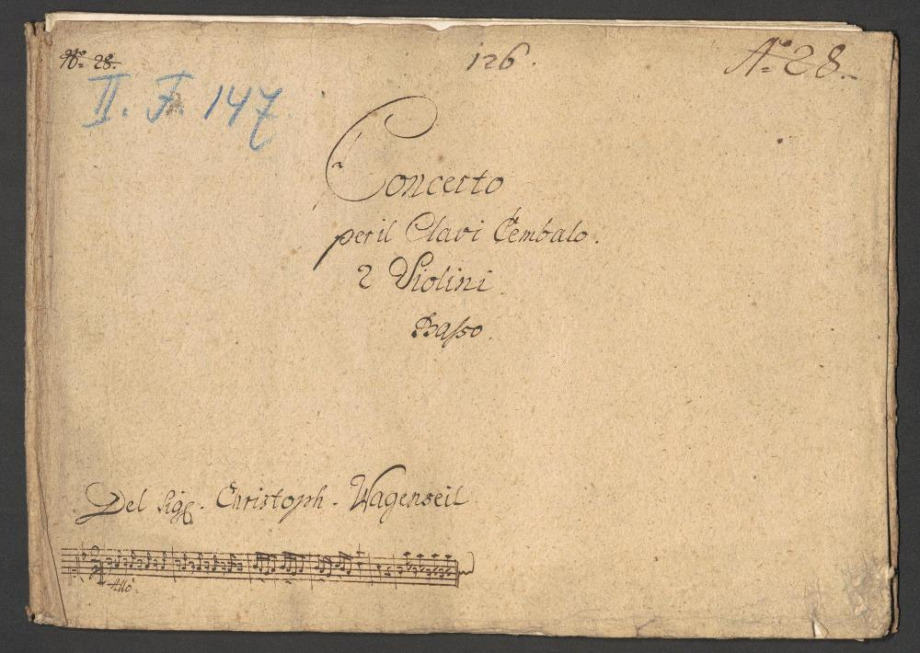 No 28.
126.
No 28.
II. F. 147
Concerto
per il Clavi Cembalo.
2 Violini
Basso.
Del Sigr. Christoph. Wagenseil
Allo.